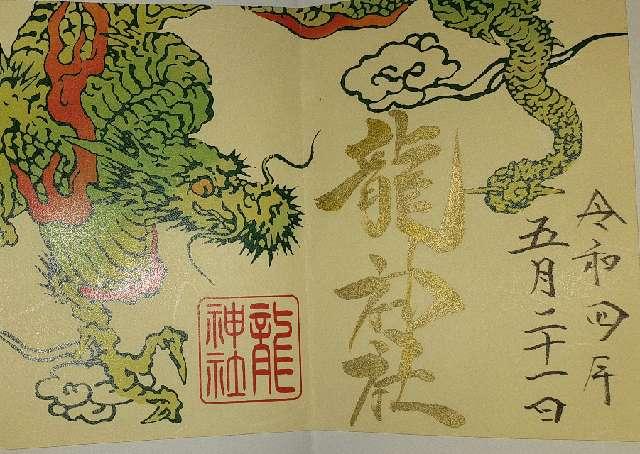 令和四年
五月二十一日
龍神社
龍
神社